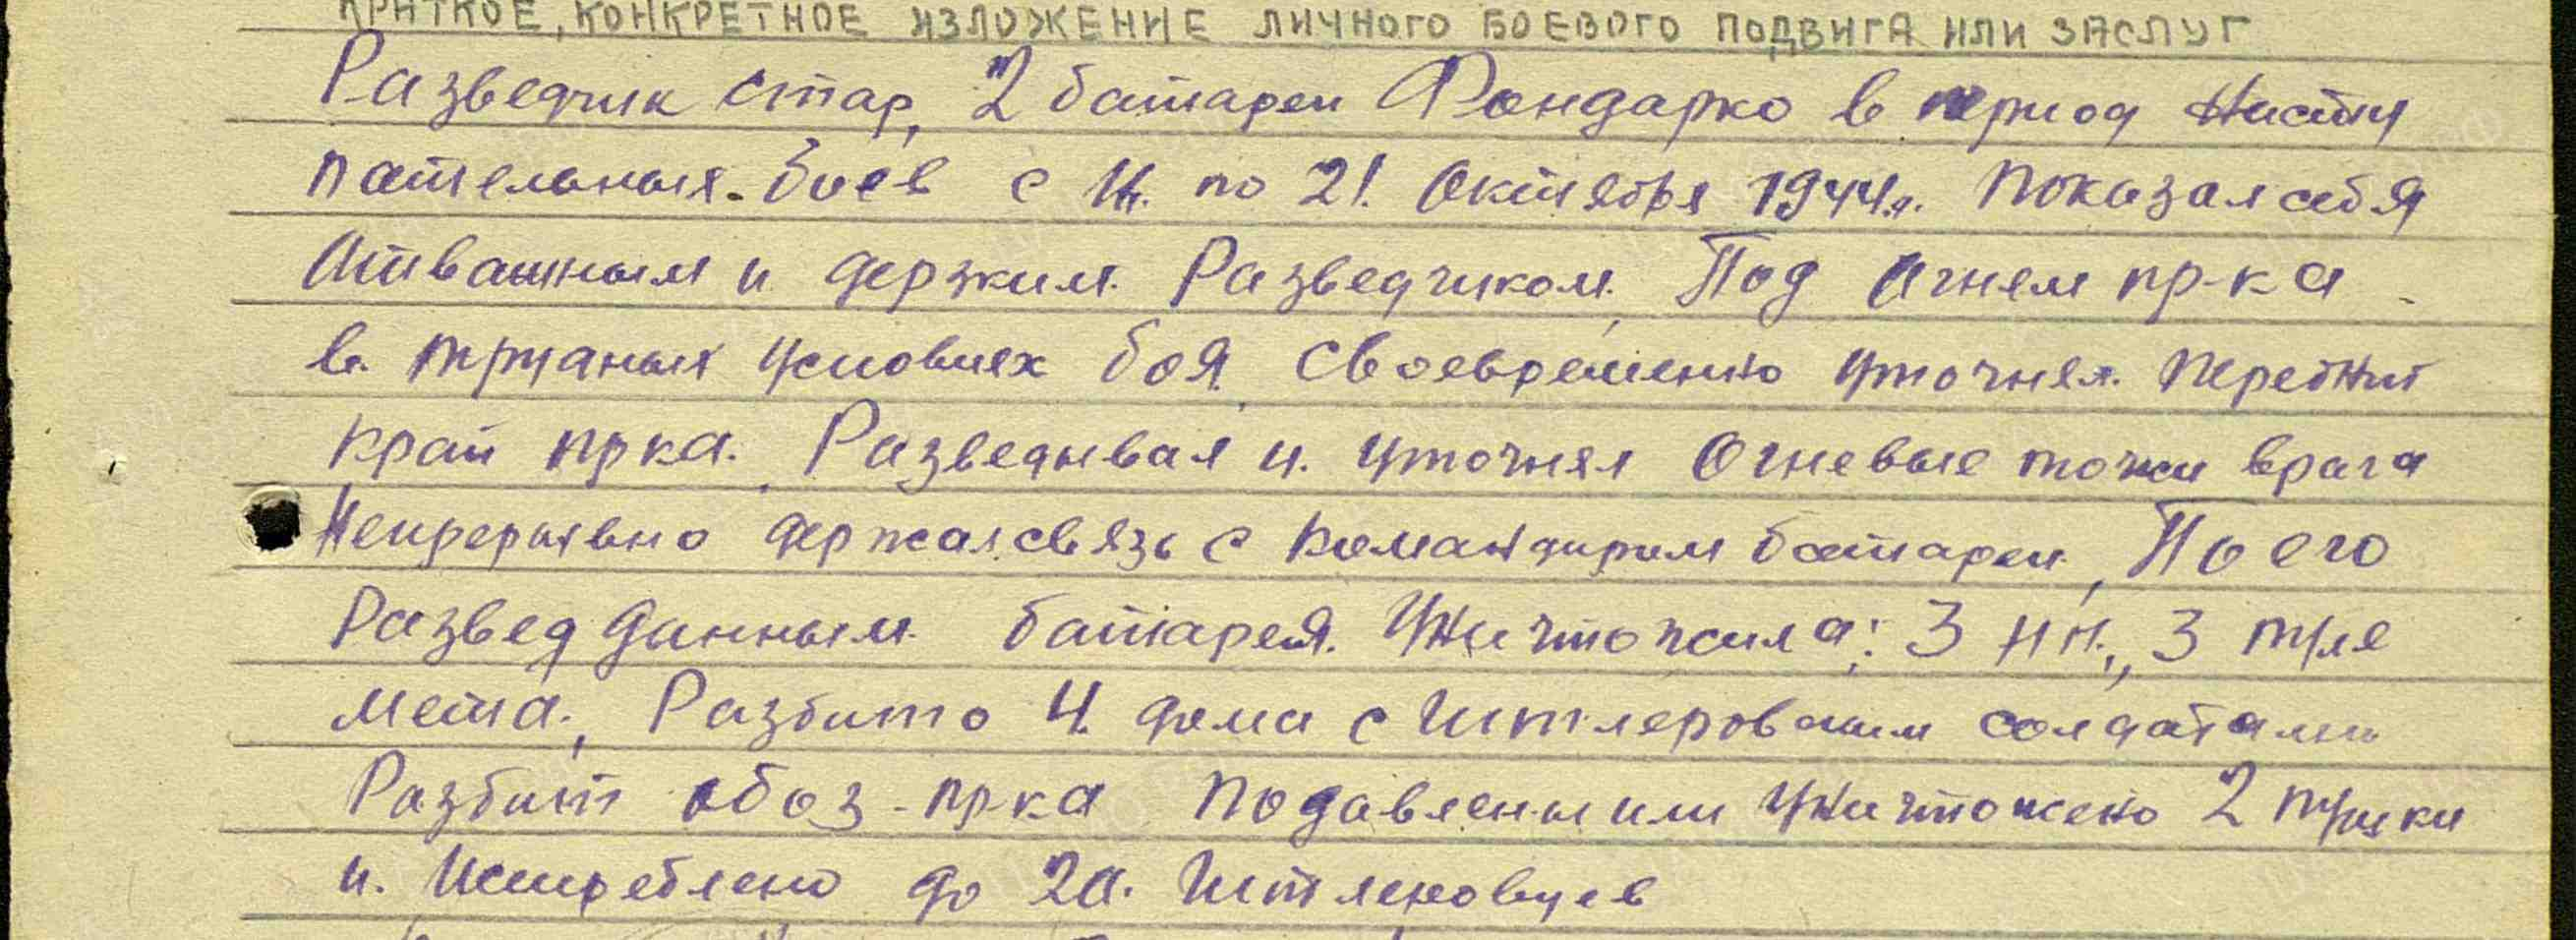 КРАТКОЕ, КОНКРЕТНОЕ ИЗЛОЖЕНИЕ ЛИЧНОГО БОЕВОГО ПОДВИГА ИЛИ ЗАСЛУГ
Разведчик стар, 2 батареи Фондарко в период насту
пательных боев с 14. по 21. Октября 1944.г. Показал себя
Отважным и держким Разведчиком. Под Огнем пр-ка
в трудных условиях боя, своевременно уточнял передний
край прка. Разведывал и уточнял Огневые точки врага
Непрерывно держал связь с командиром батареи, По его
развед данным батарея Уничтожила: 3 НП., 3 пуле
мета, Разбито 4 дома с Гитлеровским солдатами
Разбит обоз пр-ка подавлены или уничтожено 2 пушки
и. Истреблено до 20. Гитлеровцев